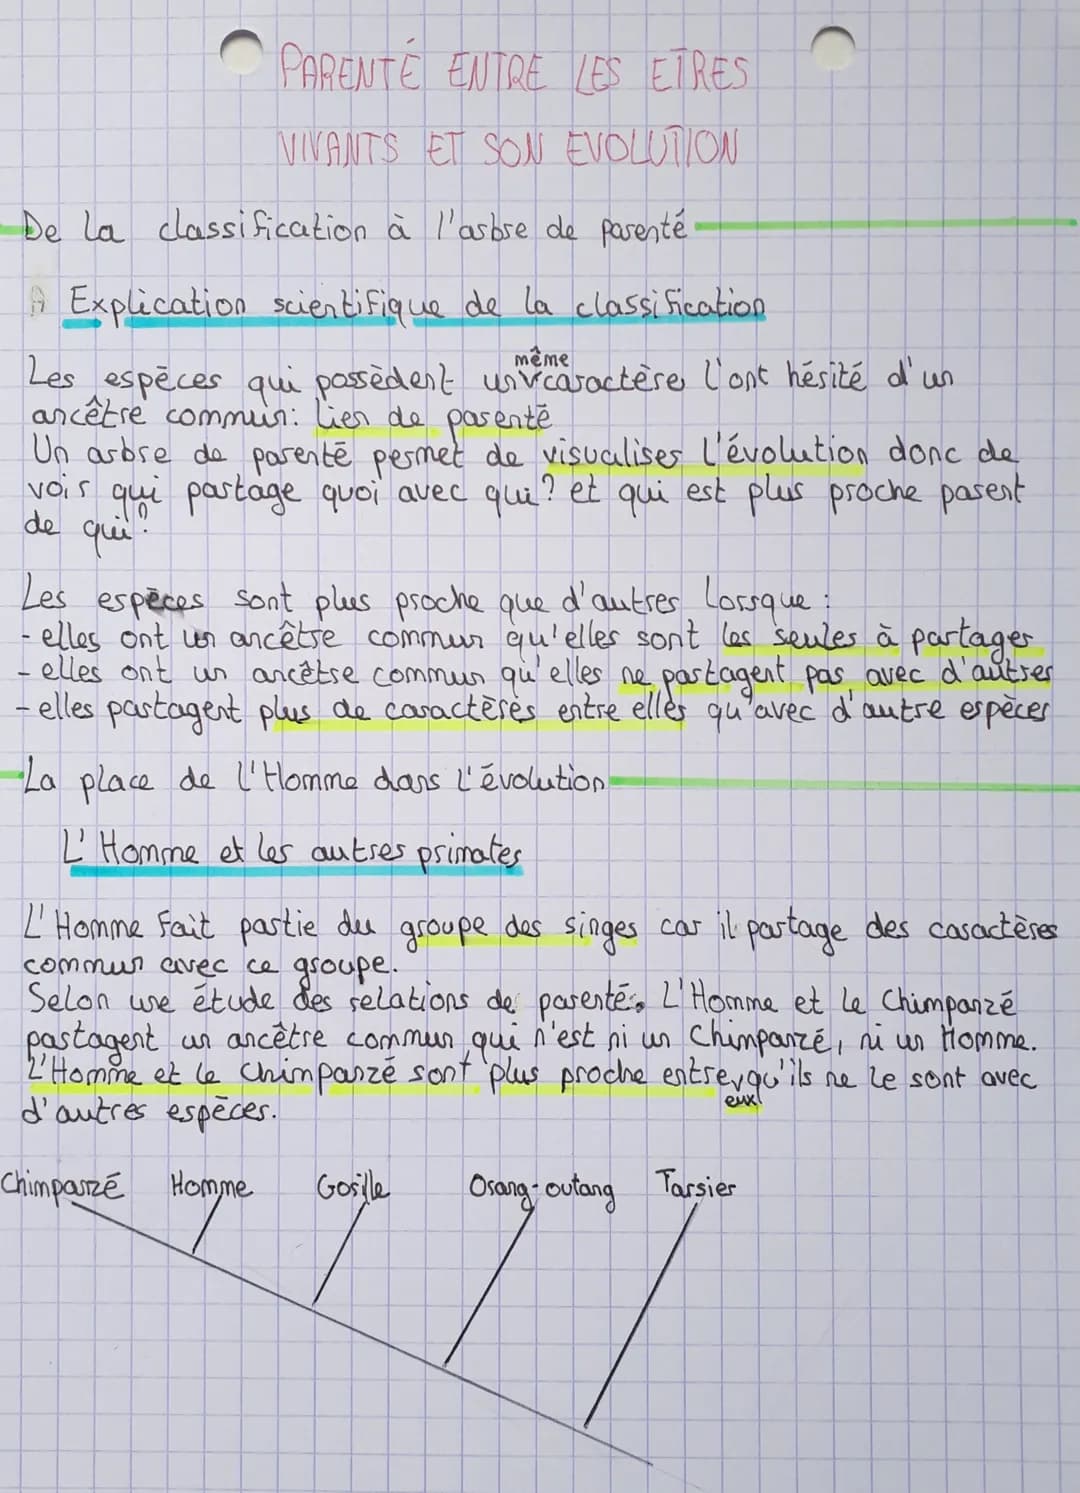 PARENTÉ ENTRE LES ETRES
VIVANTS ET SON EVOLUTION
De la classification à l'arbre de parenté
A Explication scientifique de la classification
même
Les espèces qui possèdent un v caractère l'ont hérité d'un
ancêtre commun: lien de parenté
Un arbre de parenté permet de visualiser l'évolution donc de
voir qui partage quoi avec qui? et qui est plus proche parent
de qui?
Les espèces sont plus proche que d'autres lorsque :
- elles ont un ancêtre commun qu'elles sont les seules à partager
- elles ont un ancêtre commun qu'elles ne partagent pas avec d'autres
- elles partagent plus de caractères entre elles qu'avec d'autre espèces
La place de l'Homme dans l'évolution
L'Homme et les autres primates
L'Homme fait partie du groupe des singes car il partage des caractères
commun avec ce groupe.
Selon une étude des relations de parenté, L'Homme et le Chimpanzé
partagent un ancêtre commun qui n'est ni un Chimpanzé, ni un Homme.
L'Homme et le Chimpanzé sont plus proche entre v qu'ils ne le sont avec
eux
d'autres espèces.
Chimpanzé Homme Gorille Orang-outang Tarsier